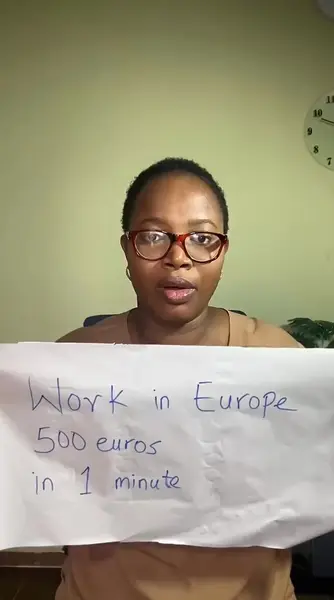 Work in Europe
500 euros
in 1 minute
11
10
9
8
7